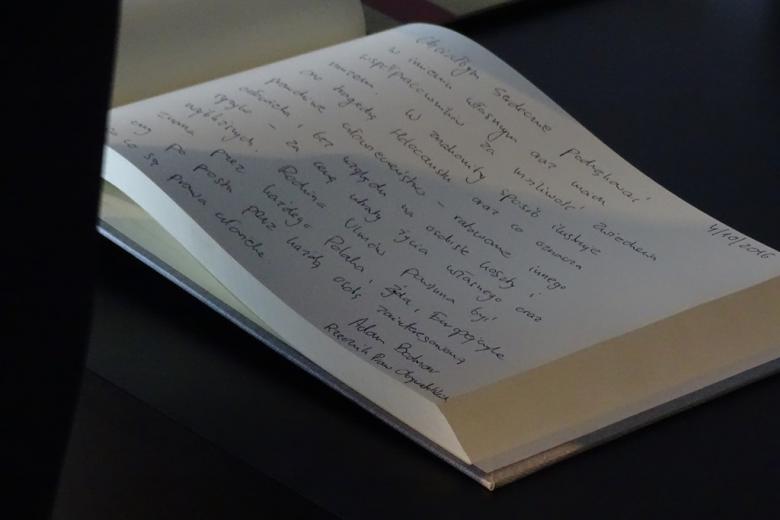 4/10/2016
Chciałbym serdecznie podziękować
w imieniu własnym oraz moich
współpracowników za możliwość zwiedzenia
muzeum. W znakomity sposób ilustruje
ono tragedię Holocaustu oraz co oznacza
prawdziwe człowieczeństwo - ratowanie innego
człowieka, bez względu na osobiste koszty i
ryzyko - za cenę utraty życia własnego oraz
najbliższych. Rodzina Ulmów powinna być
znana przez każdego Polaka, Żyda, Europejczyka
czy po prostu przez każdą osobę zainteresowaną
co są prawa człowieka.
Adam Bodnar
Rzecznik Praw Obywatelskich